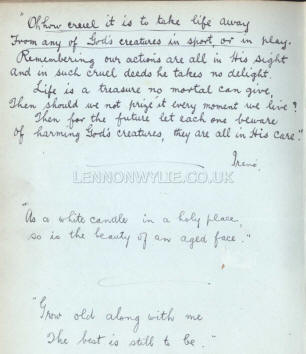 "Oh how cruel it is to take life away
From any of God's creatures in sport, or in play.
Remembering our actions are all in His sight
And in such cruel deeds he takes no delight.
Life is a treasure no mortal can give,
Then should we not prize it every moment we live?
Then for the future let each one beware
Of harming God's creatures, they are all in His care."
Irene.
LENNONWYLIE.CO.UK
"As a white candle in a holy place,
so is the beauty of an aged face."
"Grow old along with me
The best is still to be."